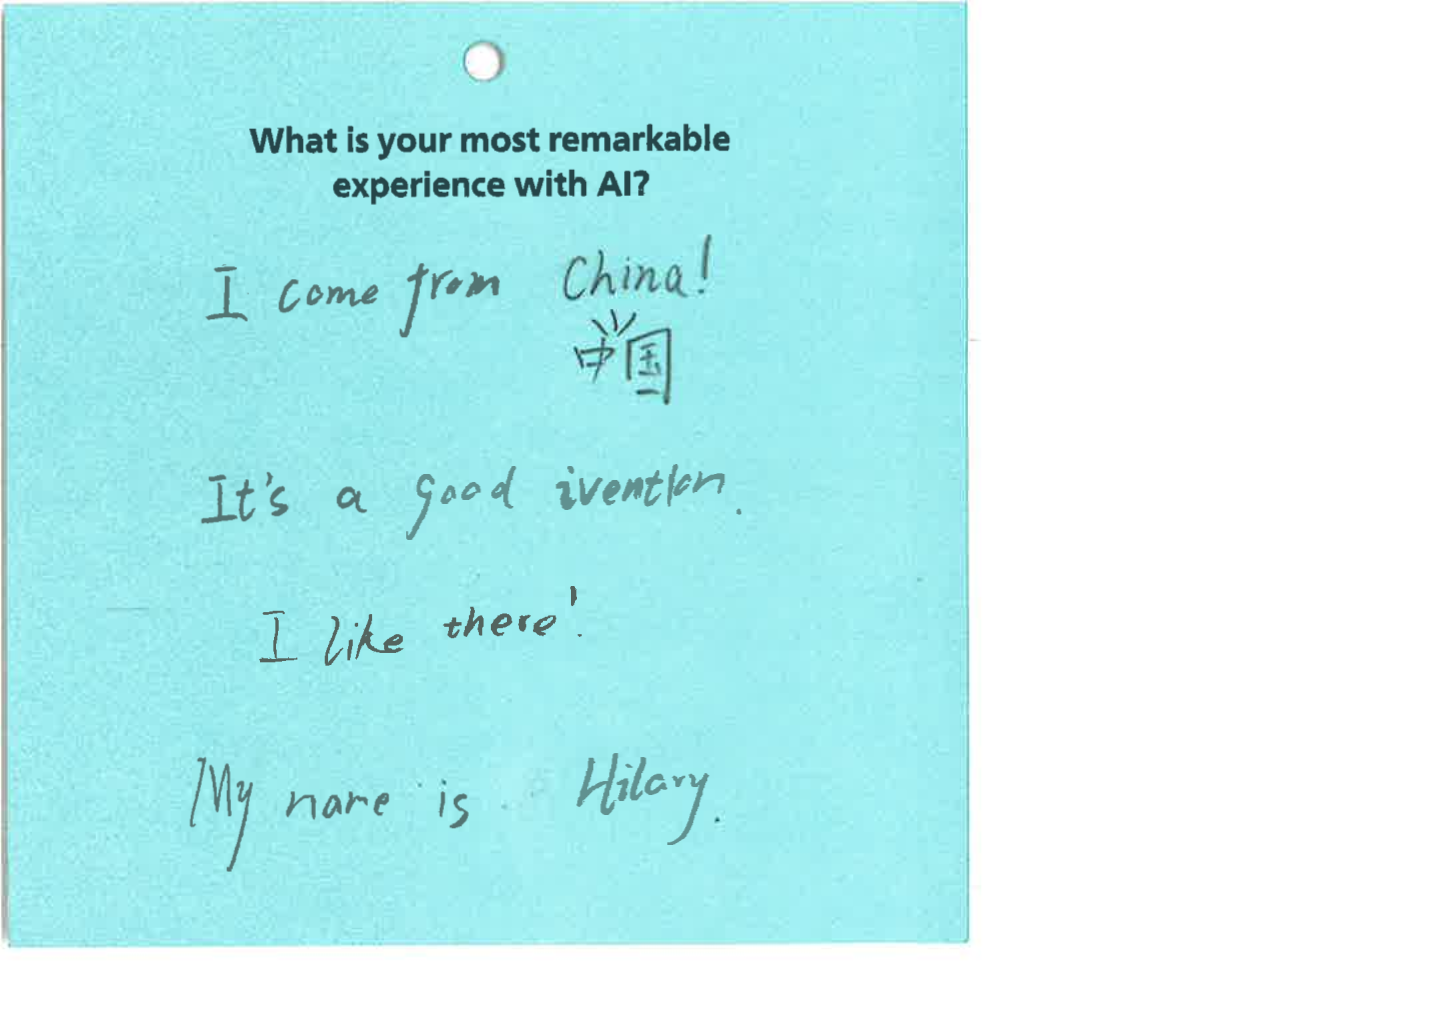 What is your most remarkable
experience with AI?
I come from China!
中国
It's a good ivention.
I like there!
My name is Hilary.